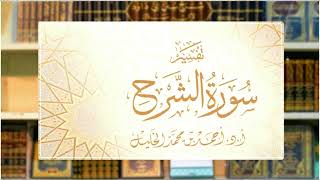 تفسير
سُورَةُ الشَّرْحِ
أ.د. أحمد بن محمد الخليل